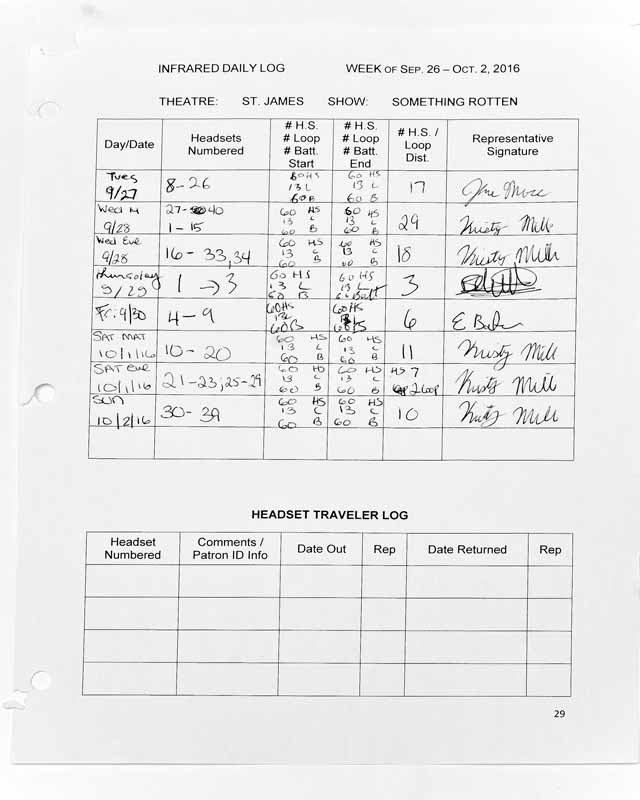 INFRARED DAILY LOG WEEK OF SEP. 26 – OCT. 2, 2016
THEATRE: ST. JAMES SHOW: SOMETHING ROTTEN
Day/Date Headsets Numbered # H.S. # Loop # Batt. Start # H.S. # Loop # Batt. End # H.S. / Loop Dist. Representative Signature
Tues 9/27 8-26 60HS 13 L 60B 60 HS 13 L 60 B 17
Wed M 9/28 27-40 1-15 60 HS 13 L 60 B 60 HS 13 L 60 B 29 Kristy Mill
Wed Eve 9/28 16-33,34 60 HS 13 L 60 B 60 HS 13 C 60 B 18 Kristy Mill
Thursday 9/29 1 → 3 60 HS 13 L 60 B 60 HS 13 L 60 Batt 3
Fri 9/30 4-9 60HS 13L 60B 60HS 6
SAT MAT 10/1/16 10-20 60 HS 13 L 60 B 60 HS 13 L 60 B 11 Kristy Mill
SAT eve 10/1/16 21-23,25-29 60 HS 13 L 60 B 60 HS 13 L 60 B HS 7 2 loop Kristy Mill
SUN 10/2/16 30-39 60 HS 13 L 60 B 60 HS 13 L 60 B 10 Kristy Mill
HEADSET TRAVELER LOG
Headset Numbered Comments / Patron ID Info Date Out Rep Date Returned Rep
29